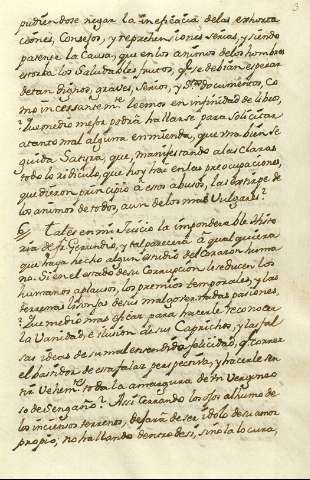 3
pudiendose negar la ineficacia de las exhorta
ciones, Consejos, y reprehensiones serias, y siendo
patente la Causa, que en los animos de los hombres
estorba los saludables frutos, q.e se debian esperar
de tan dignos, graves, serios, y documentos, Co
mo incesantem.te leemos en infinidad de libros,
que medio mejor podrá hallarse para solicitar
a tanto mal alguna enmienda, que una bien se
guida Satyra, que, manifestando a las Claras
todo lo ridiculo, que hoy hay en las preocupaciones,
que dieron principio a estos abusos, las extirpe de
los animos de todos, aun de los mas Vulgares?
Tal es en mi Juicio la imponderable Histo
ria de fr. Gerundio, y tal parecerá a qualquiera
que haya hecho algun estudio del Corazon huma
no. Si en el estado de su Corrupcion le seducen los
humanos aplausos, los premios temporales, y las
terrenas lisonjas de sus mal governadas pasiones,
que medio mas eficaz para hacerle reconocer
la Vanidad, e ilusion de sus Caprichos, y las fal
sas ideas de su mal entendida felicidad, q.e correr
el bastidor de esta falsa perspectiva, y hacerle sen
tir Vehem.te toda la amargura de un Vergonzo
so desengaño? Assi cerrando los ojos al humo de
los inciensos terrenos, dejará de ser idolo de su amor
proprio; no hallando dentro de si, sino la locura,